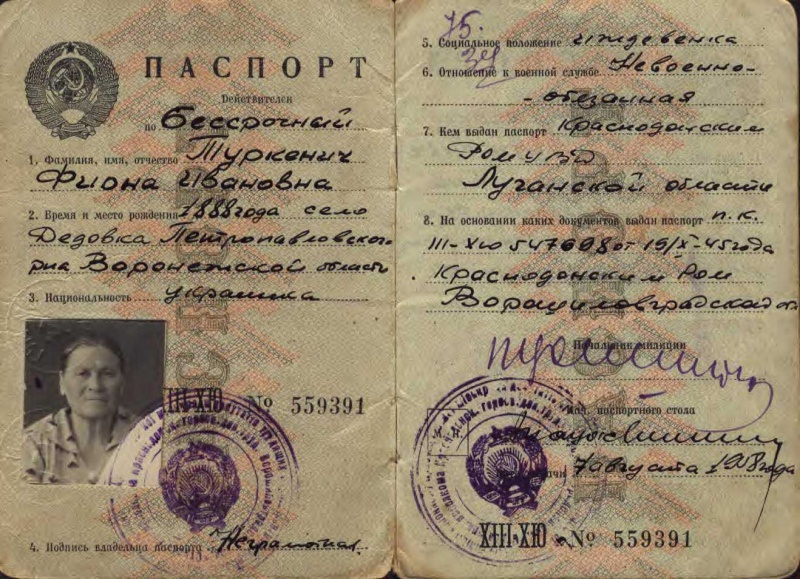 ПАСПОРТ
Действителен
по Бессрочный
1. Фамилия, имя, отчество Туркенич
Фиона Ивановна
2. Время и место рождения 1888 года село
Дедовка Петропавловского
р-на Воронежской область
3. Национальность украинка
XIII-ХЮ № 559391
4. Подпись владельца паспорта Неграмотная
75.
5. Социальное положение иждевенка
6. Отношение к военной службе Невоенно-
-обезанная
7. Кем выдан паспорт Краснодонским
Ром УВД
Луганской области
8. На основании каких документов выдан паспорт п.к.
III-ХЮ 547698 от 19/X-45 года
Краснодонским Ром
Ворошиловградской
Начальник милиции
Нач. паспортного стола
7 августа 1958 года
XIII-ХЮ № 559391